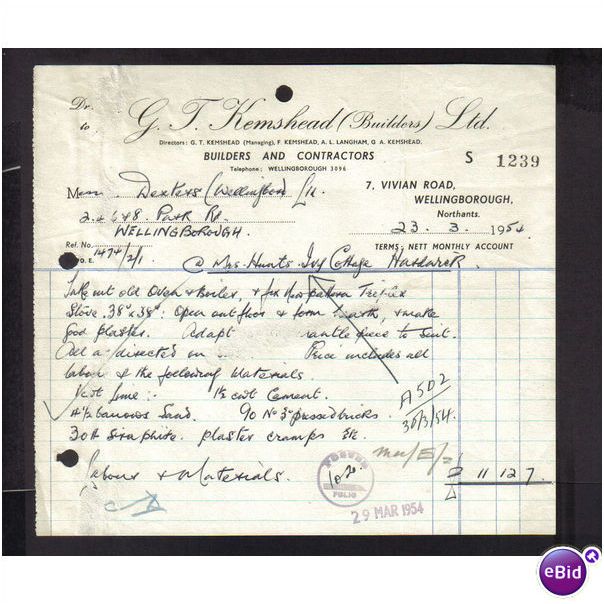 Dr.
to
G. T. Kemshead (Builders) Ltd.
Directors: G. T. KEMSHEAD (Managing), F. KEMSHEAD, A. L. LANGHAM, G A. KEMSHEAD.
BUILDERS AND CONTRACTORS
Telephone: WELLINGBOROUGH 3096
S 1239
Dexters (Wellingboro)
7, VIVIAN ROAD,
WELLINGBOROUGH,
Northants.
Park Rd.
WELLINGBOROUGH.
23. 3. 1954
Ref. No.
1474/2/1
TERMS: NETT MONTHLY ACCOUNT
@ Mrs. Hunts Ivy Cottage Hardwick.
Take out old Oven & Boiler, & fix New Triplex
Stove. 38" x 38": Open out floor & form hearth, & make
good plaster. Adapt mantle piece to suit.
All as directed on Price includes all
labour & the following Materials
1½ cwt Cement.
4½ Sand. 90 No 3" pressed bricks.
30 Siraphite. plaster cramps Etc
A502
30/3/54
Labour & Materials.
11 12 7.
POSTED
FOLIO
29 MAR 1954
eBid